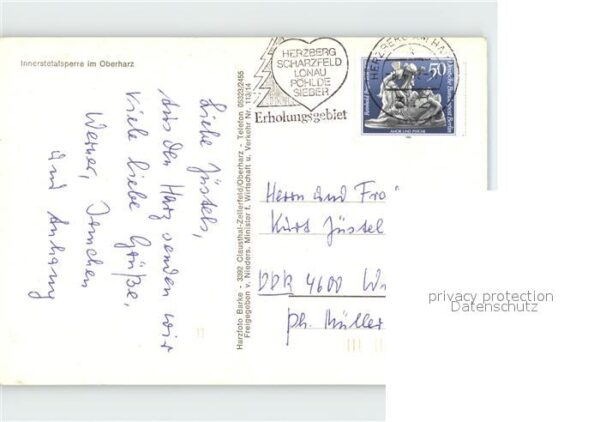 Innerstetalsperre im Oberharz
Liebe Jüstels,
aus dem Harz senden wir
viele liebe Grüße,
Werner, Jennchen
und Anhang
Harzfoto Barke - 3392 Clausthal-Zellerfeld/Oberharz - Telefon 05323/2455
Freigegeben v. Nieders. Minister f. Wirtschaft u. Verkehr Nr. 113/14
HERZBERG
SCHARZFELD
LONAU
PÖHLDE
SIEBER
Erholungsgebiet
HERZBERG AM HA
50
Deutsche Bundespost Berlin
AMOR UND PSYCHE
Herrn und Fra
Kurt Jüstel
DDR 4600 Wi
Ph. Müller
privacy protection
Datenschutz